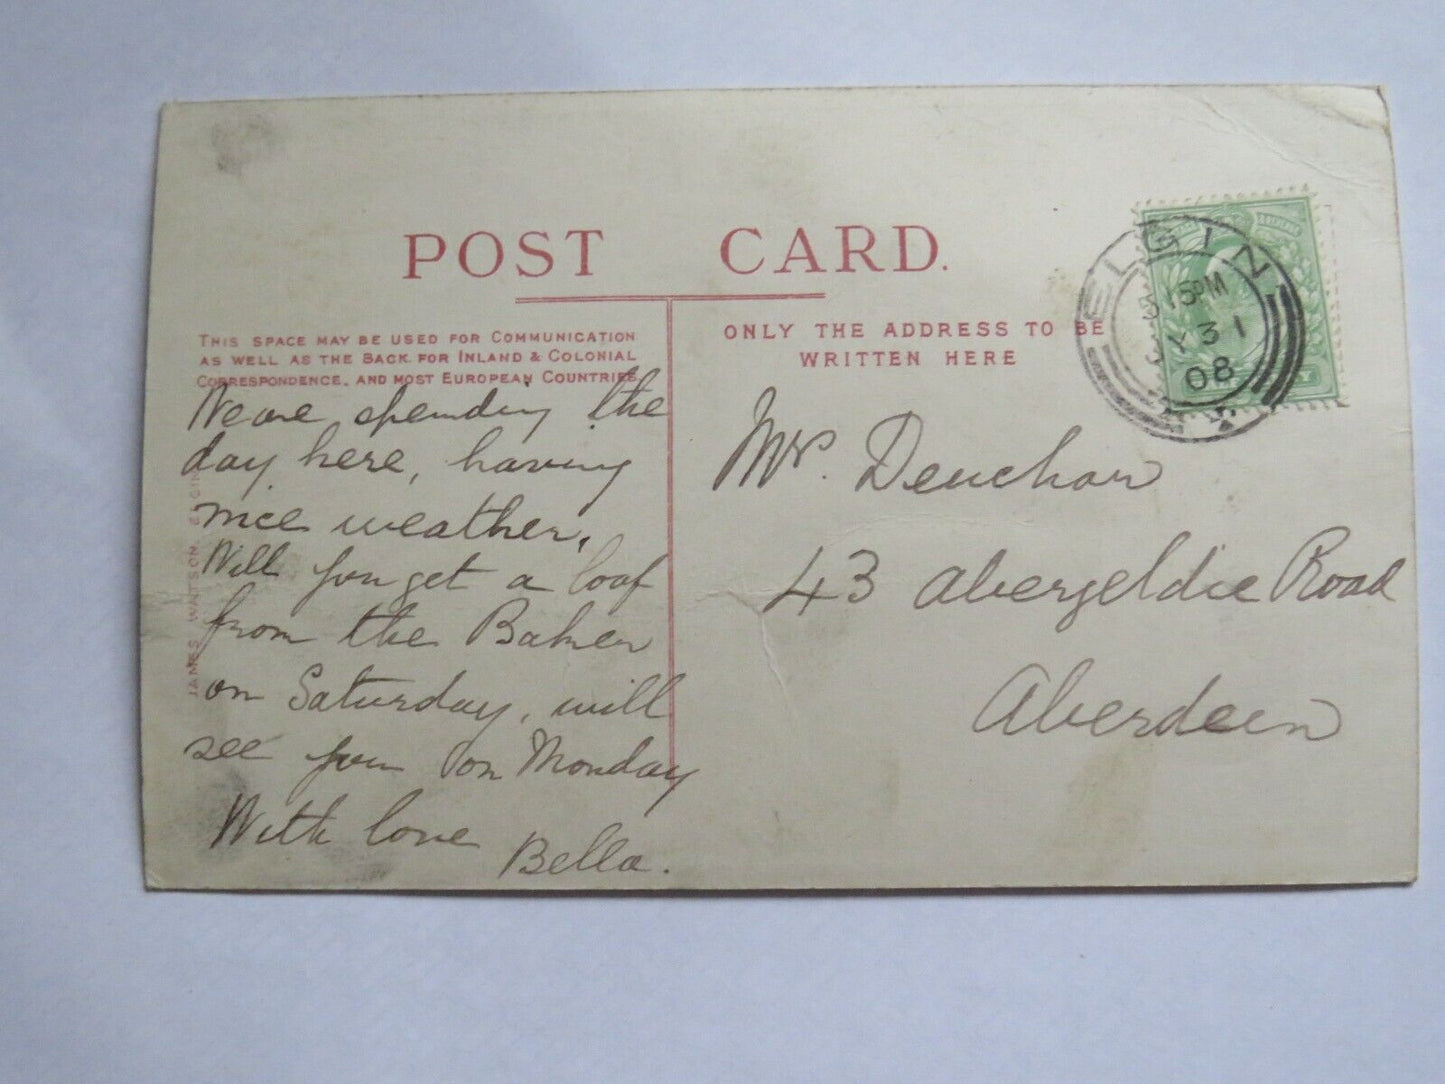 POST CARD.
THIS SPACE MAY BE USED FOR COMMUNICATION
AS WELL AS THE BACK FOR INLAND & COLONIAL
CORRESPONDENCE, AND MOST EUROPEAN COUNTRIES
We are spending the
day here, having
nice weather.
Will you get a loaf
from the Baker
on Saturday, will
see you on Monday
With love
Bella.
JAMES WATSON, ELGIN
ONLY THE ADDRESS TO BE
WRITTEN HERE
Mr. Deuchar
43 Abergeldie Road
Aberdeen
ELGIN
315PM
31
08